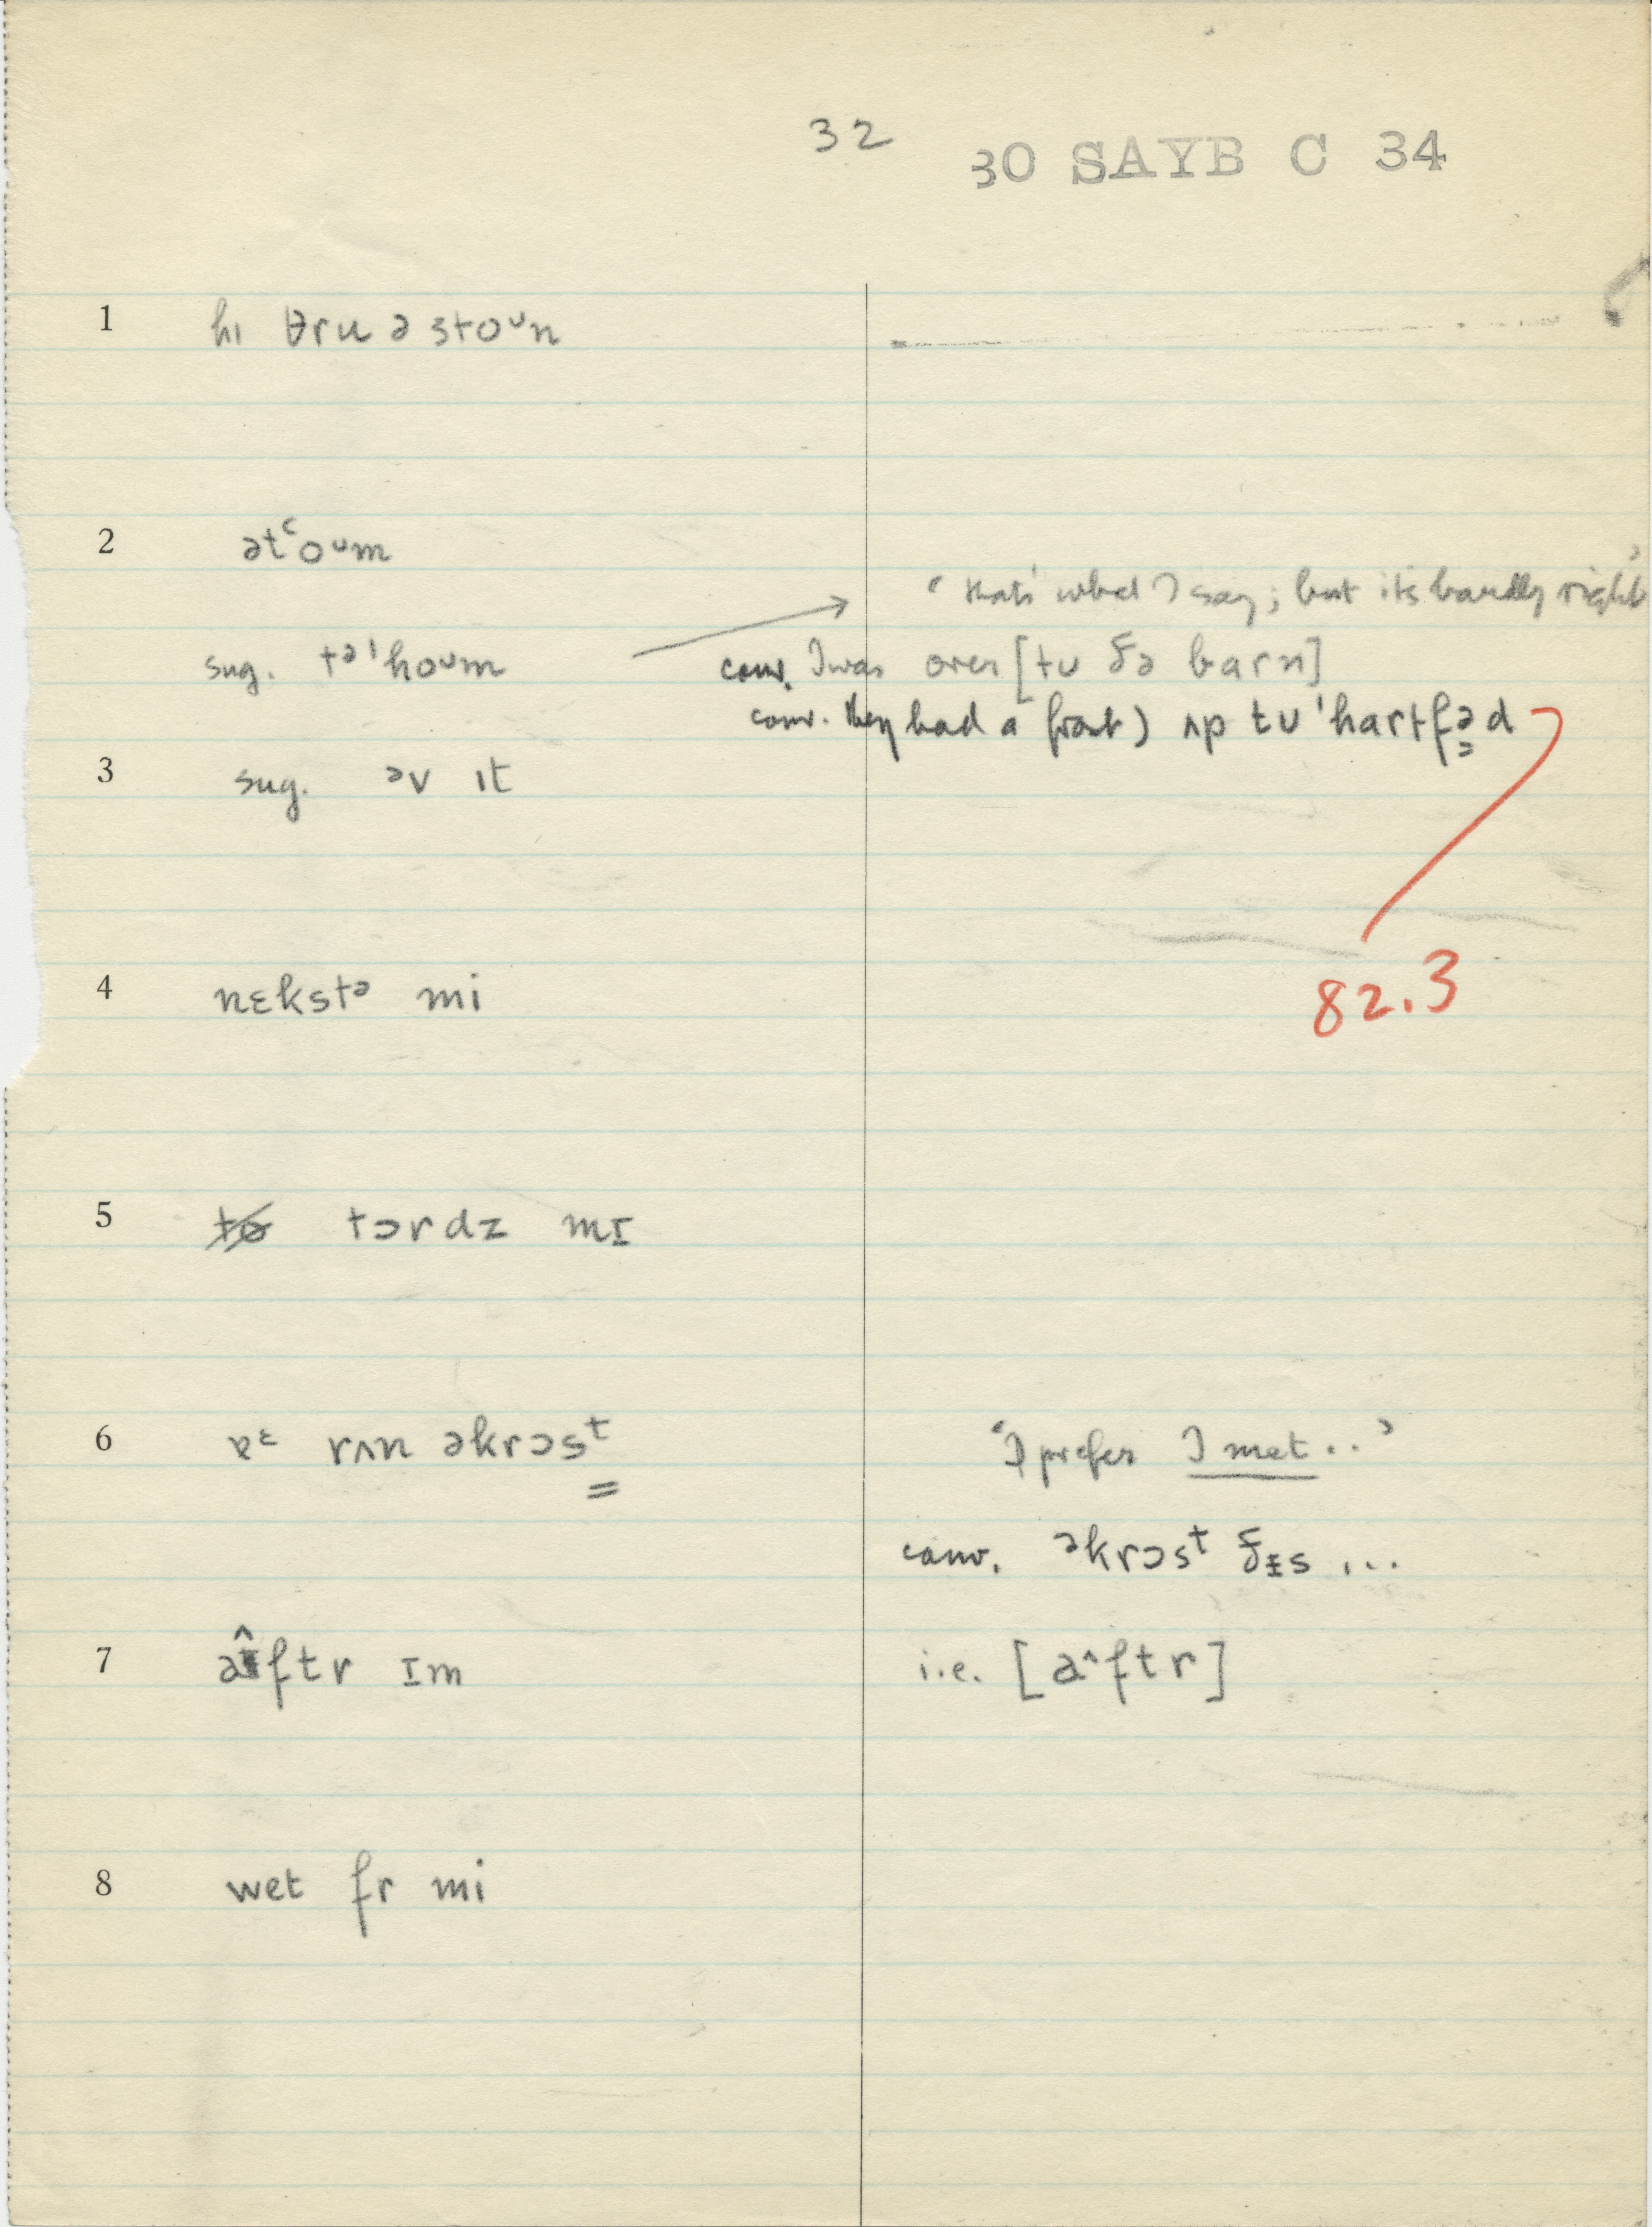 32 30 SAYB C 34
1 hɪ θru ə stoᴜn
2 ətʿoᴜm
‘that's what I say; but its hardly right’
sug. tə'hoᴜm → conv. I was over [tᴜ ðə barn]
conv. they had a frost) ʌp tᴜ 'hartfəd
3 sug. əv ɪt
4 nɛkstə mi
82.3
5 tɔrdz mɪ
6 ɐᵋ rʌn əkrɔsᵗ ‘I prefer I met..’
conv. əkrɔsᵗ ðɪs ...
7 aˆftr ɪm i.e. [aˆftr]
8 wet fr mi